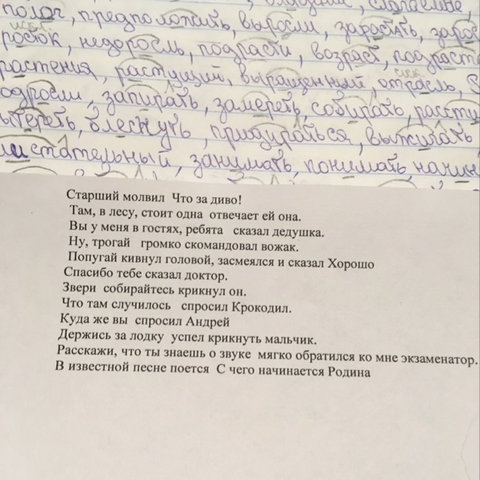 полог, предположить, выросли, зарастить, зарос
росток, недоросль, подрасти, возраст, подраст
растения, растущий, выращенный, отрасль,
одросли, запирать, замереть, собирать, расст
ытереть, блеснуть, придираться, выжигать
истательный, занимать, понимать, начин
Старший молвил Что за диво!
Там, в лесу, стоит одна отвечает ей она.
Вы у меня в гостях, ребята сказал дедушка.
Ну, трогай громко скомандовал вожак.
Попугай кивнул головой, засмеялся и сказал Хорошо
Спасибо тебе сказал доктор.
Звери собирайтесь крикнул он.
Что там случилось спросил Крокодил.
Куда же вы спросил Андрей
Держись за лодку успел крикнуть мальчик.
Расскажи, что ты знаешь о звуке мягко обратился ко мне экзаменатор.
В известной песне поется С чего начинается Родина